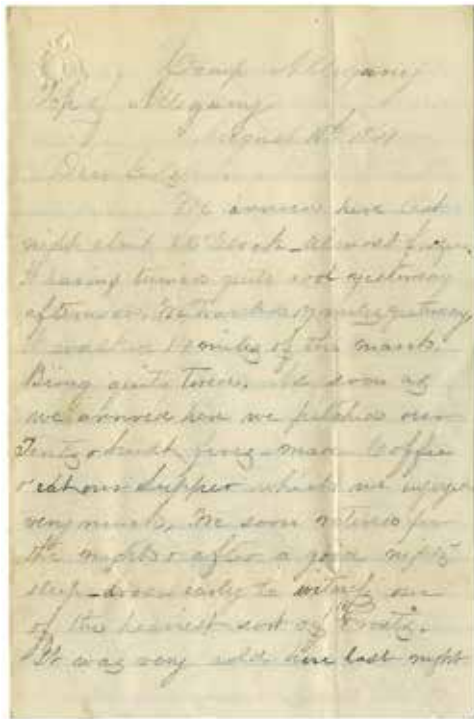 Camp Allegany
Top of Allegany
August 16th
Dear
We arrived here last
night about Oclock almost froze.
It having turned quite cool yesterday
afternoon. We marched miles yesterday
I walked 14 miles of the march.
Being quite tired. As soon as
we arrived here we pitched our
Tents & built fires made Coffee
& eat our Supper which we enjoyed
very much. We soon retired for
the night & after a good nights
sleep arose early to witness one
of the heaviest sort of Frosts.
It was very cold here last night